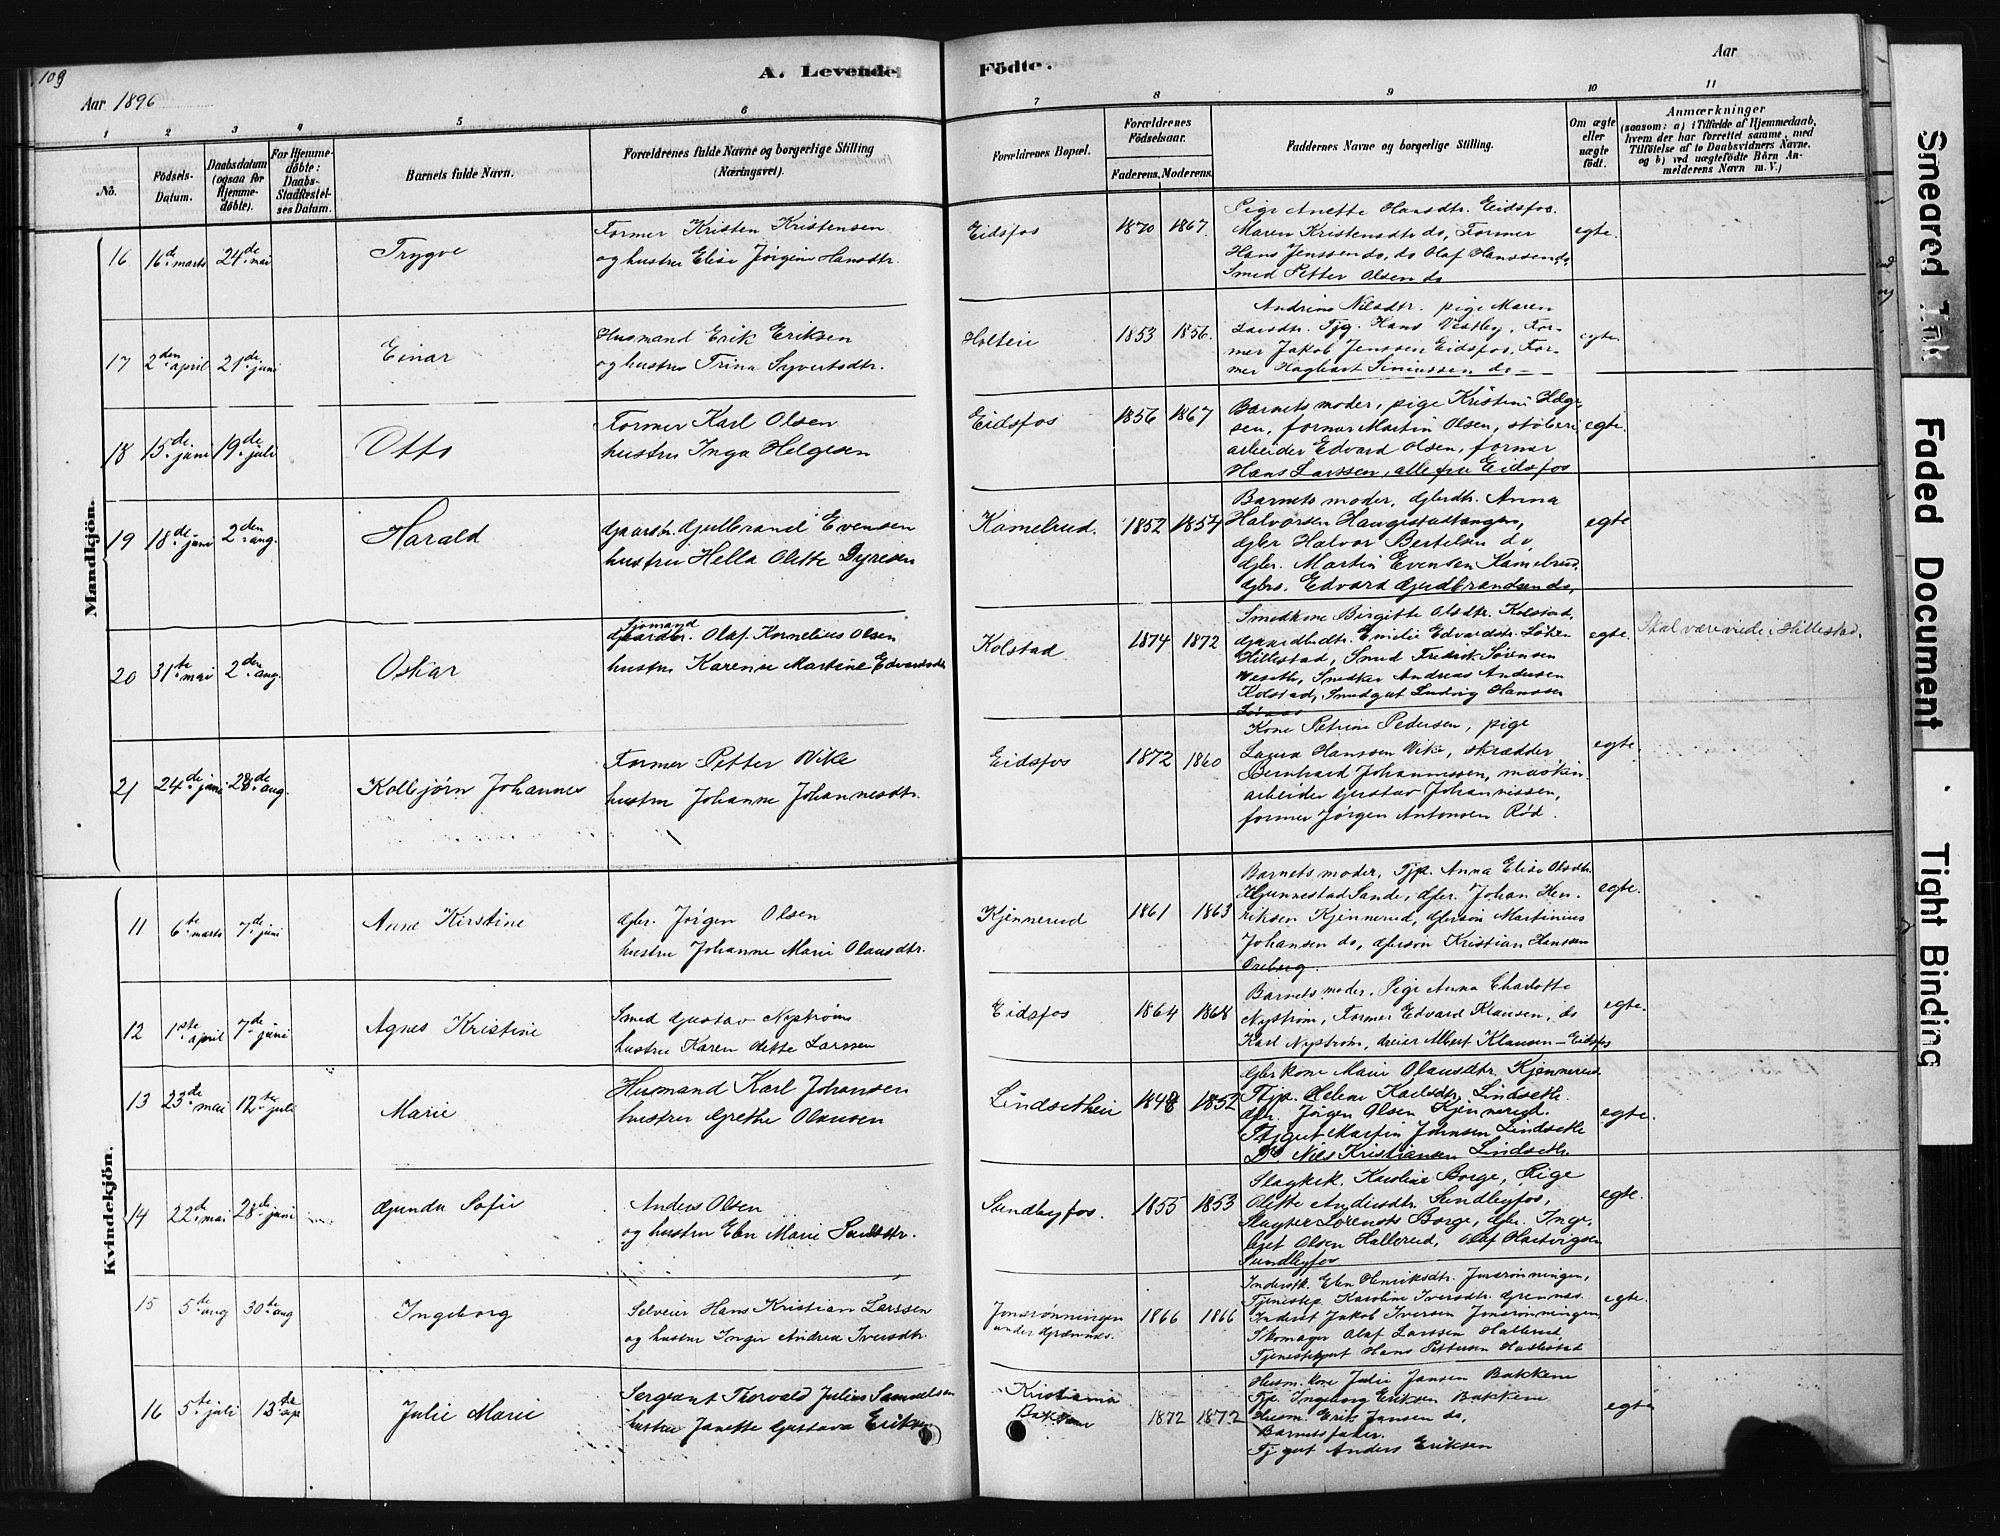 109
A. Levende Födte.
Aar 1896
Aar
1 2 3 4 5 6 7 8 9 10 11
No.
Födsels-Datum.
Daabsdatum (ogsaa for Hjemme-döbte).
For Hjemme-döbte: Daabs-Stadfæstel-ses Datum.
Barnets fulde Navn.
Forældrenes fulde Navne og borgerlige Stilling (Næringsvei).
Forældrenes Bopæl.
Forældrenes Födselsaar.
Faderens. Moderens.
Faddernes Navne og borgerlige Stilling.
Om ægte eller uægte födt.
Anmærkninger
(saasom: a) i Tilfælde af Hjemmedaab, hvem der har forrettet samme, med Tilföielse af to Daabsvidners Navne. og b) ved uægtefödte Börn An-melderens Navn m. V.)
Mandkjön.
16 16de marts 24de mai Trygve
Former Kristen Kristensen
og hustru Elise Jørgine Hansdtr.
Eidsfos 1870 1867.
Pige Anette Hansdtr. Eidsfos.
Maren Kristensdtr do, Former
Hans Jenssen do, do Olaf Hanssen do,
Smed Petter Olsen do
egte.
17 2den april 21de juni Einar
Husmand Erik Eriksen
og hustru Trina Syvertsdtr.
Holtein 1853 1856.
Andrine Nilsdtr. pige Maren
Larsdtr. Tjg. Hans Vestby, For-
mer Jakob Jenssen Eidsfos, For-
mer Hagbart Simenssen do
egte.
18 15de juni 19de juli Otto
Former Karl Olsen
hustru Inga Helgesen
Eidsfos 1856 1867
Barnets moder, pige Kristine Helge-
sen, former Martin Olsen, støberi
arbeider Edvard Olsen, former
Hans Larssen, alle fra Eidsfos
egte.
19 18de juni 2den aug. Harald
Gaardbr. Gulbrand Evensen
hustru Hella Olette Dyresen
Kamelrud. 1852 1854
Barnets moder, Gbrdtr. Anna
Halvorsen Haugestadtangen,
Gbr Halvor Bertelsen do,
Gbr. Martin Evensen Kamelrud,
Gbrs. Edvard Gudbrandsen do,
egte
20 31te mai 2den aug. Oskar
Sjømand
Gaardbr. Olaf Kornelius Olsen
hustru Karense Martine Edvardsdtr
Kolstad 1874 1872
Smedkone Birgitte Olsdtr. Kolstad,
Gaardbdtr. Emilie Edvardsdtr.
Hillestad, Smed Fredrik Sørensen
Snedker Andreas Andersen
Kolstad, Smedgut Ludvig Hanssen
egte.
Skal være viede i Hillestad.
21 24de juni 28de aug. Kolbjørn Johannes
Former Petter Vike
hustru Johanne Johannesdtr.
Eidsfos 1872 1860
Kone Petrine Pedersen, pige
Laura Hanssen Vike, skrædder
Bernhard Johannessen, maskin
arbeider Gustav Johannessen,
former Jørgen Antonsen Rød.
egte.
Kvindekjön.
11 6te marts 7de juni Anne Kirstine
Gbr. Jørgen Olsen
hustru Johanne Marie Olausdtr.
Kjennerud 1861 1863
Barnets moder, Tjp. Anna Elise Olsdtr.
Gunnestad Sande, Gbr. Johan Hen-
riksen Kjennerud, Gbrsøn Martinius
Johansen do, Gbrsøn Kristian Hanssen
Oreberg.
egte.
12 1ste april 7de juni Agnes Kristine
Smed Gustav Nystrøm
hustru Karen Olette Larssen
Eidsfos 1864 1868
Barnets moder, Pige Anna Charlotte
Nystrøm, Former Edvard Klausen, do
Karl Nystrøm, dreier Albert Klausen - Eidsfos
egte.
13 23de mai 12te juli Marie
Husmand Karl Johansen
hustru Grethe Olausen
Lindsetheie 1848 1852
Gbr kone Marie Olausdtr. Kjennerud
Tjp. Helene Karlsdtr. Lindseth.
Gbr. Jørgen Olsen Kjennerud.
Tjgut Martin Johnsen Lindseth
Do Nils Kristiansen Lindseth.
egte.
14 22de mai 28de juni Gunda Sofie
Anders Olsen
og hustru Elen Marie
Sundbyfos. 1855 1853
Slagtk. Karoline Borge, Pige
Olette Andersdtr. Sundbyfos,
Slagter Lorents Borge, Gbr. Inge-
bret Olsen Hallerud, Olaf Hartvigsen
Sundbyfos
egte.
15 5te aug 30te aug Ingeborg
Selveier Hans Kristian Larssen
og hustru Inger Andrea Iversdtr.
Jonsrønningen
under Grennes. 1866 1866
Inderstk. Elen Henriksdtr. Jonsrønningen,
Tjenestep. Karoline Iversdtr. Grennes.
Inderst Jakob Iversen Jonsrønningen
Skomager Olaf Larssen Hallerud,
Tjenestegut Hans Pettersen Haslestad
egte.
16 5te juli 13de sep Julie Marie
Sergeant Thorvald Julius Samuelsen
hustru Janette Gustava Eriksen
Kristiania
Bakkene 1872 1872
Husm. kone Julie Jansen Bakkene
Tjp. Ingeborg Eriksen Bakkene
Husm. Erik Jansen do,
Barnets fader.
Tj gut Anders Eriksen
egte
Smeared Ink
Faded Document
Tight Binding